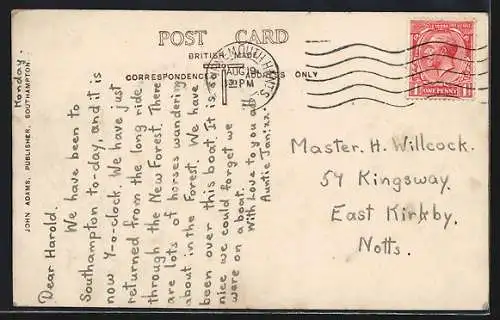 POST CARD
BRITISH MADE
CORRESPONDENCE ADDRESS ONLY
JOHN ADAMS, PUBLISHER, SOUTHAMPTON.
ONE PENNY
Monday.
Dear Harold.
We have been to
Southampton to-day, and it is
now 7-o-clock. We have just
returned from the long ride
through the New Forest. There
are lots of horses wandering
about in the Forest. We have
been over this boat. It is so
nice we could forget we
were on a boat.
With Love to you all
Auntie
Master. H. Willcock.
54 Kingsway.
East Kirkby.
Notts.